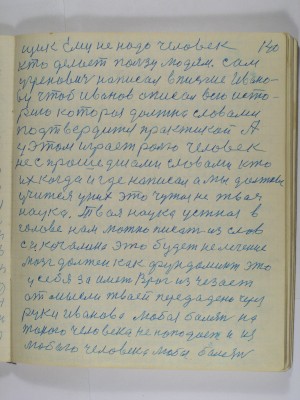 щик Ему не надо человек 140
кто делает пользу людям. Сам
написал в Ивано-
ву чтоб Иванов описал всю исто-
рию которая должна словами
подтвердится практикой А
у этом играет ролю человек
не с прошедшими словами кто
их когда и где написал а мы должны
учится у них это чужая не твоя
наука. Твоя наука устная в
голове нам можно писать из слов
это будет не лечение
мозг должен как фундамент это
у себя за иметь Враг исчезает
от мысли твоей передадено через
руки Иванова любая болезнь на
такого человека не попадает и из
любого человека любая болезнь